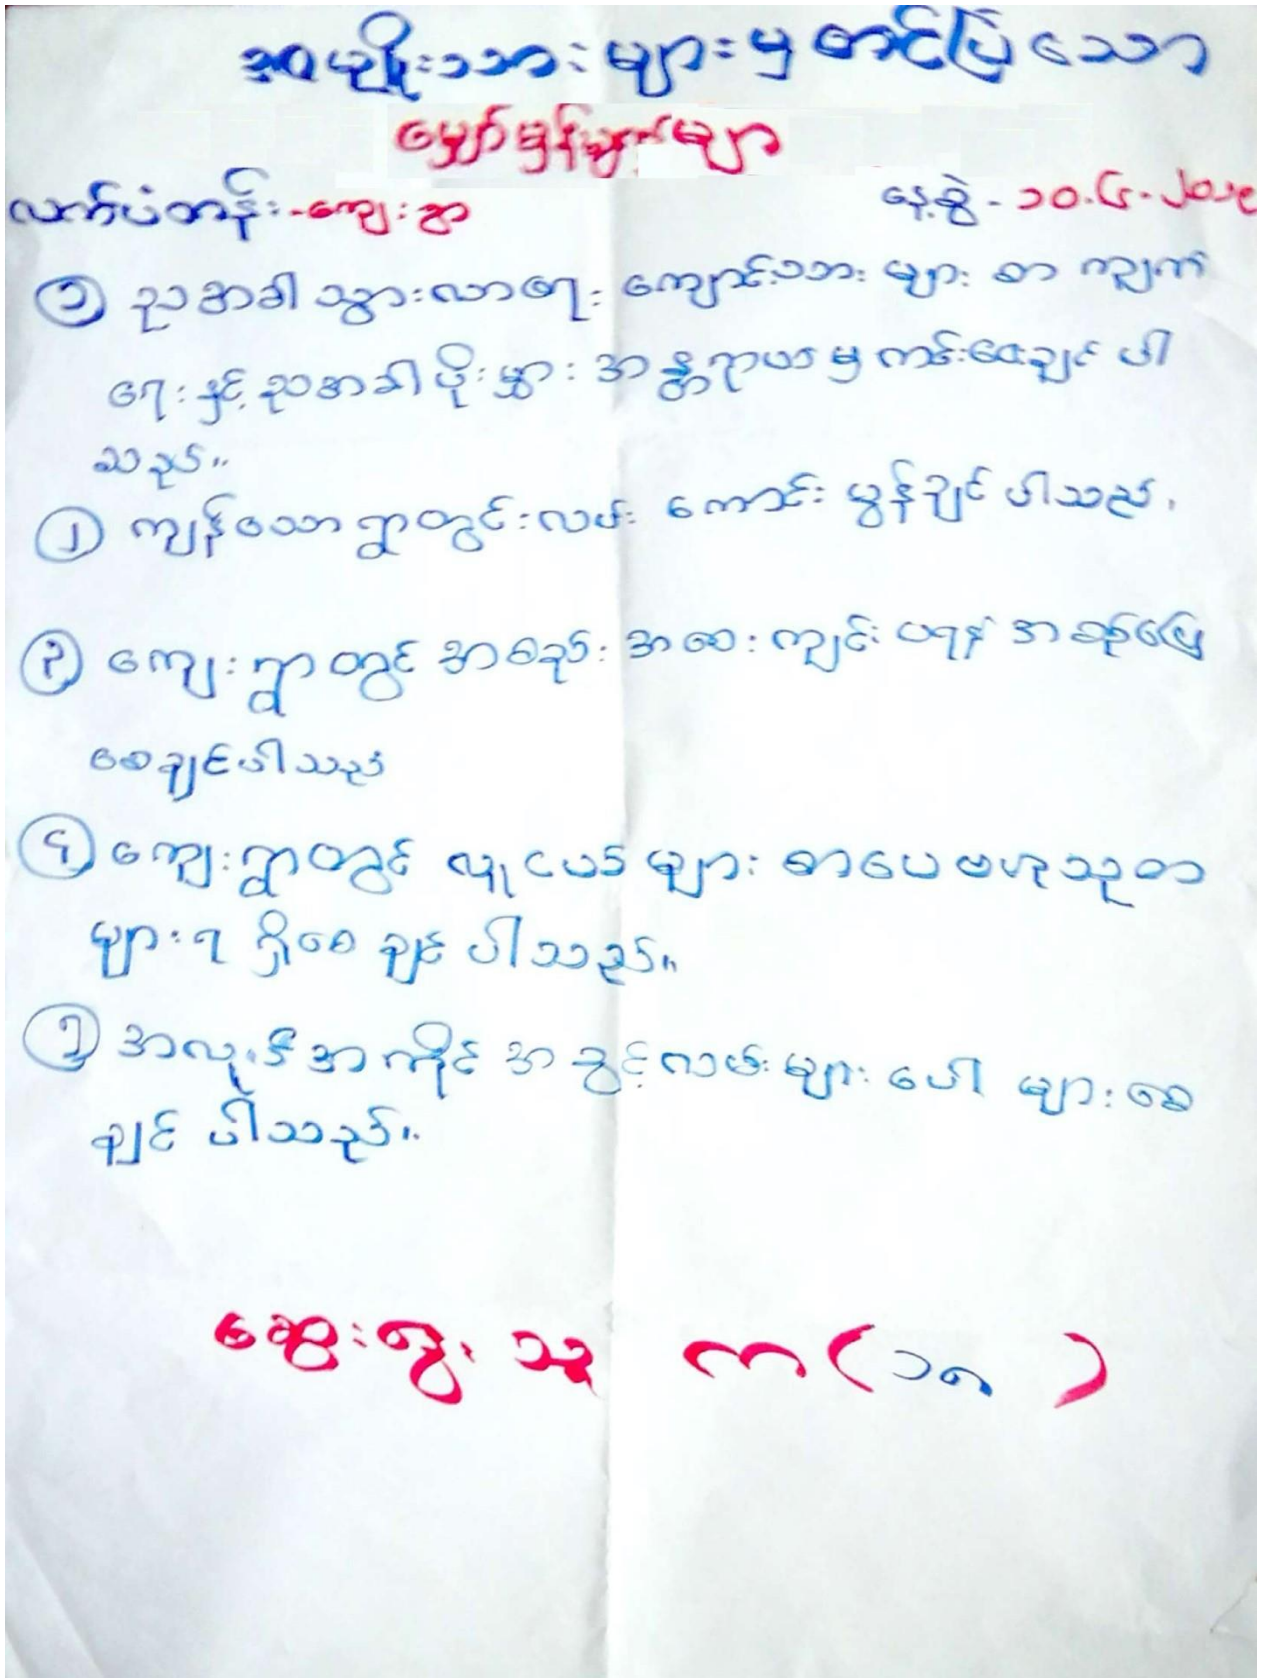 အမျိုးသားများမှ တင်ပြသော
မျှော်မှန်းချက်များ
လက်ပံတန်း-ကျေးရွာ နေ့စွဲ - ၁၀.၆.၂၀၁၉
၁ ညအခါ သွားလာရေး ကျောင်းသား များ စာ ကျက်
ရေး နှင့် ညအခါ ပိုးမွှား အန္တရာယ်မှ ကင်းဝေးချင် ပါ
သည်။
၂ ကျန်သော ရွာတွင်းလမ်း ကောင်း မွန်ချင် ပါသည်.
၃ ကျေးရွာတွင် အစည်း အဝေး ကျင်း ပရန် အဆင်ပြေ
စေချင်ပါသည်
၄ ကျေးရွာတွင် လူငယ် များ စာပေ ဗဟုသုတ
များ ရ ရှိစေ ချင် ပါသည်။
၅ အလုပ်အကိုင် အခွင့်လမ်း များ ပေါ များ စေ
ချင် ပါသည်။
ဆွေးနွေး သူ က ( ၁၈ )